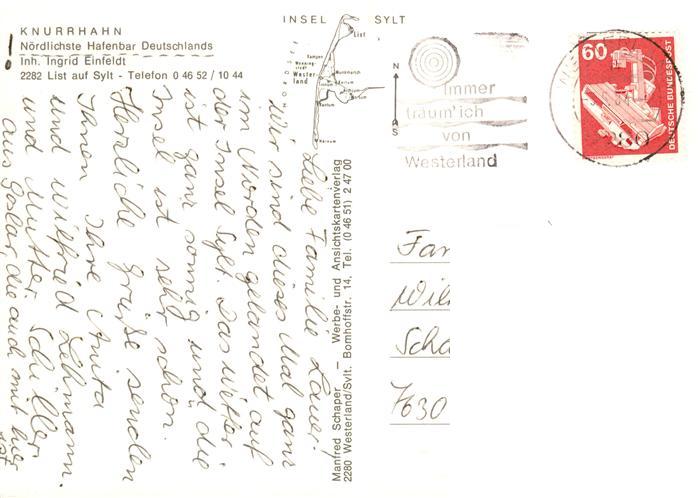 KNURRHAHN
Nördlichste Hafenbar Deutschlands
Inh. Ingrid Einfeldt
2282 List auf Sylt - Telefon 0 46 52 / 10 44
INSEL SYLT
List
Kampen
Westerland
N
S
Immer
träum' ich
von
Westerland
60
DEUTSCHE BUNDESPOST
Liebe Familie Lauer.
Wir sind dieses Mal ganz
im Norden gelandet auf
der Insel Sylt. Das Wetter
ist ganz sonnig und die
Insel ist sehr schön.
Herzliche Grüße senden
Ihnen Ihre Anita
und Wilfried Lehmann.
und Mutter Schiller
aus Goslar, die auch mit hier
ist
Manfred Schaper — Werbe- und Ansichtskartenverlag
2280 Westerland/Sylt. Bomhoffstr. 14, Tel. (0 46 51) 2 47 00
Fam
Wil
Scha
7630